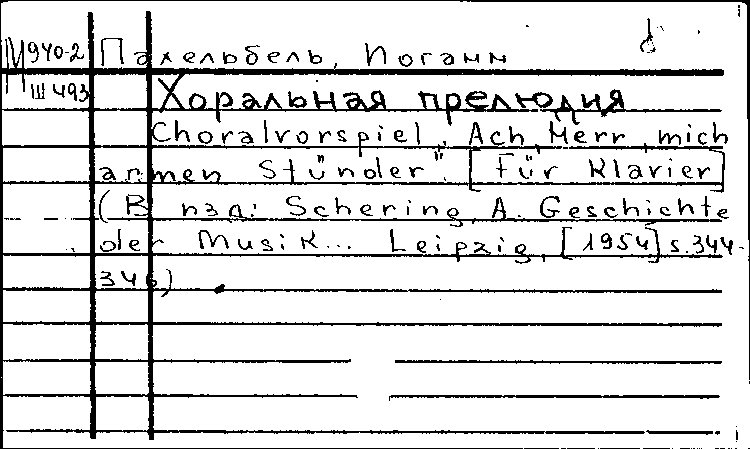 М940-2 Пахельбель, Иоганн
Ш493 Хоральная прелюдия
Choralvorspiel „Ach, Herr, mich
armen Stünder". [Für Klavier]
(В изд: Schering, A. Geschichte
der Musik... Leipzig, [1954] s. 344-
346)